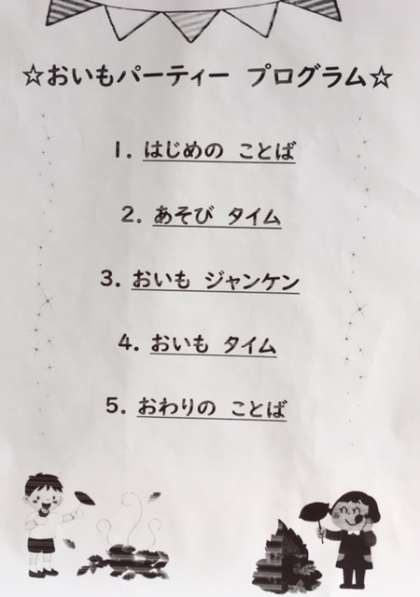 ☆おいもパーティー プログラム☆
1. はじめの ことば
2. あそび タイム
3. おいも ジャンケン
4. おいも タイム
5. おわりの ことば